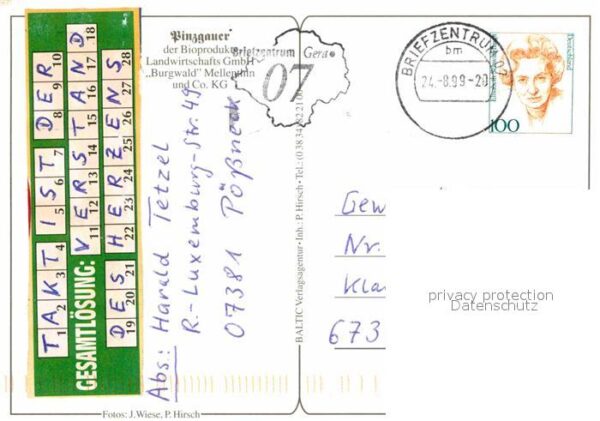 Pinzgauer
der Bioproduk
Landwirtschafts GmbH
„Burgwald" Mellenthin
und Co. KG
Briefzentrum Gera
07
BRIEFZENTRUM 07
bm
24.-8.99-20
Deutschland
100
TAKT IST DER
1 2 3 4 5 6 7 8 9 10
VERSTAND
11 12 13 14 15 16 17 18
DES HERZENS
19 20 21 22 23 24 25 26 27 28
GESAMTLÖSUNG:
Abs: Harald Tetzel
R.-Luxemburg-Str. 49
07381 Pößneck
BALTIC Verlagsagentur · Inh.: P. Hirsch · Tel.:
Gew
Nr.
Kla
673
privacy protection
Datenschutz
Fotos: J.Wiese, P. Hirsch